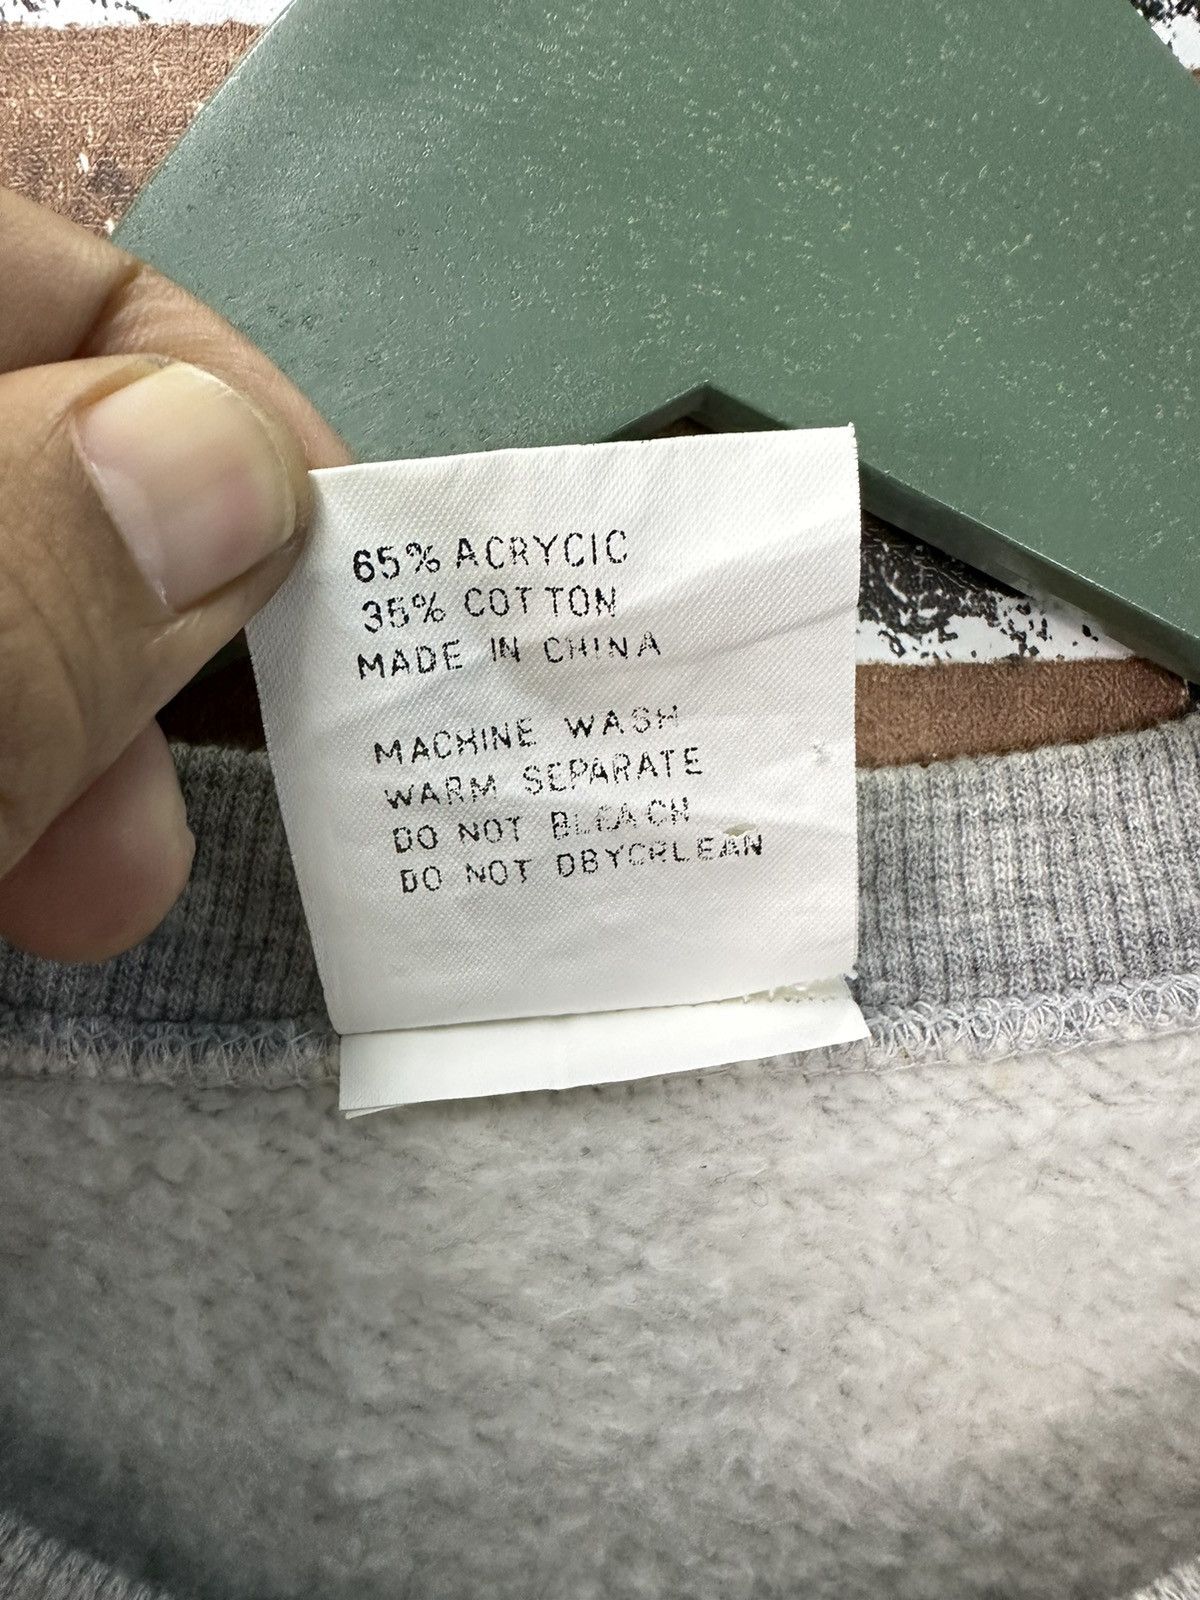 65% ACRYCIC
35% COTTON
MADE IN CHINA
MACHINE WASH
WARM SEPARATE
DO NOT BLEACH
DO NOT DBYCRLEAN